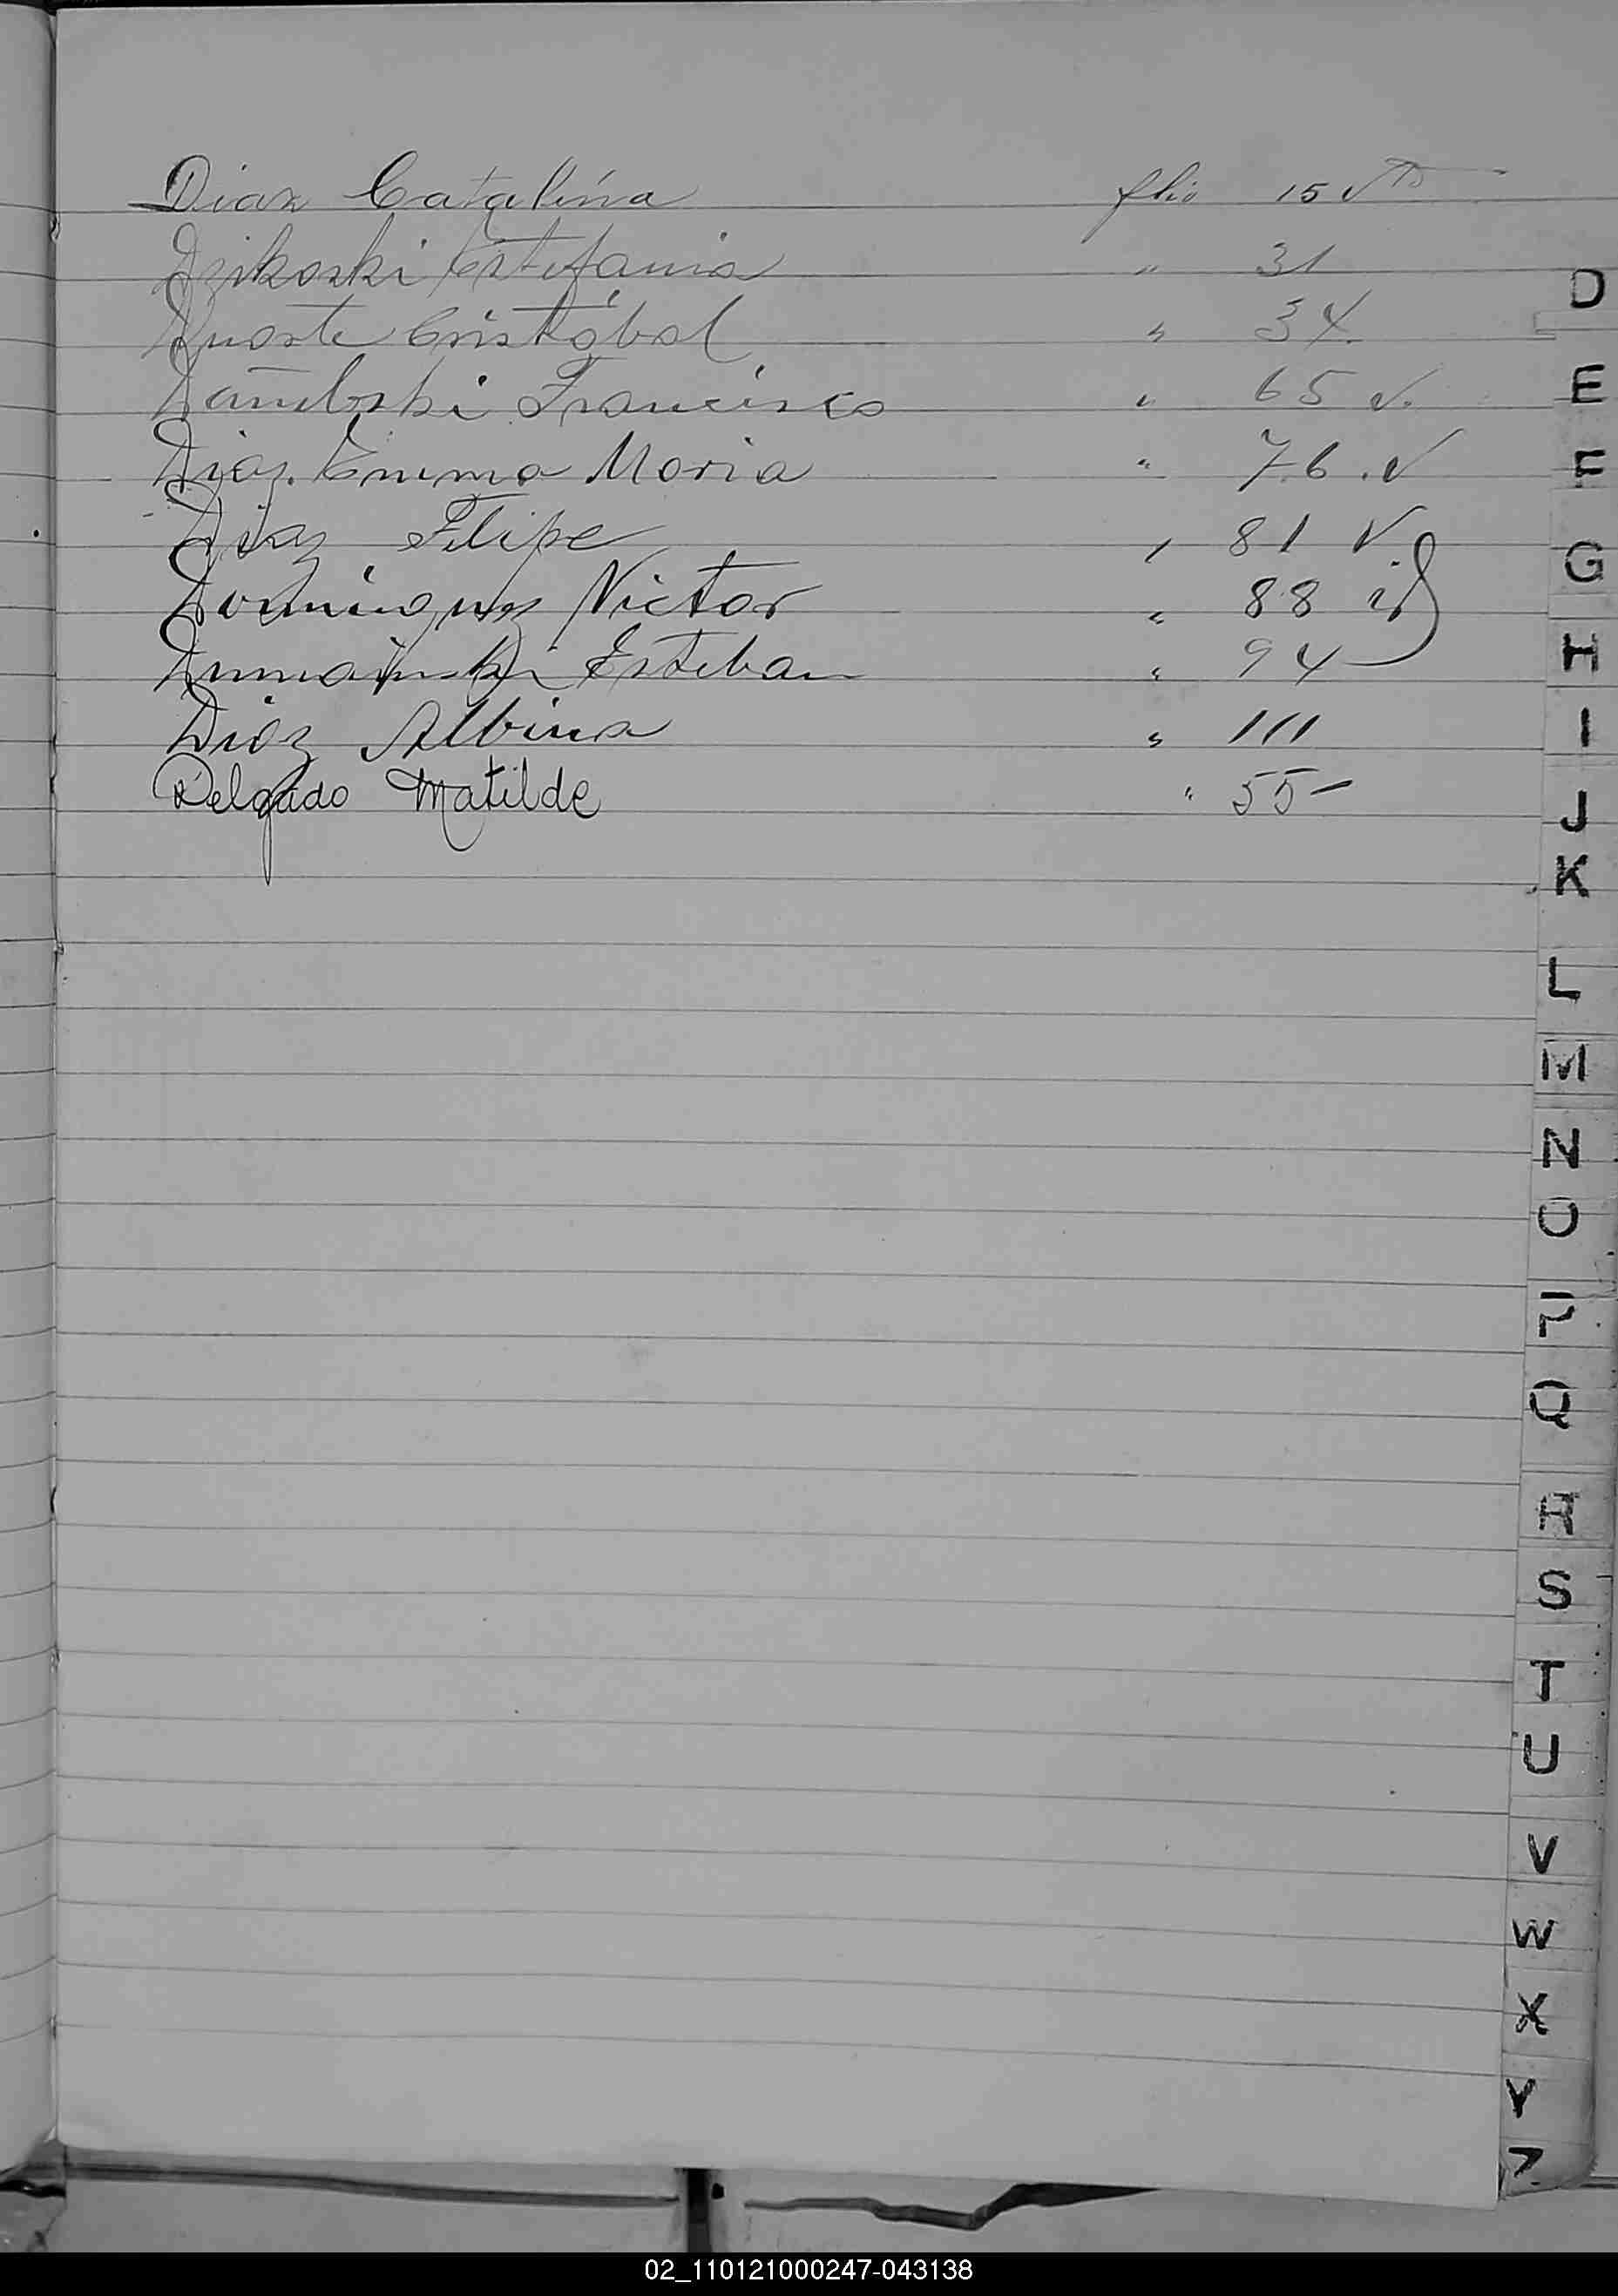 Diaz Catalina flio 15 vta
Dzikoski Estefania " 31
Duarte Cristóbal " 34
Francisco " 65 v.
Diaz Emma Maria " 76 . v
Diaz Felipe " 81 v
Dominguez Victor " 88 id
Esteban " 94
Diaz Albina " 111
Delgado Matilde " 55 -
D
E
F
G
H
I
J
K
L
M
N
O
P
Q
R
S
T
U
V
W
X
Y
Z
02_110121000247-043138